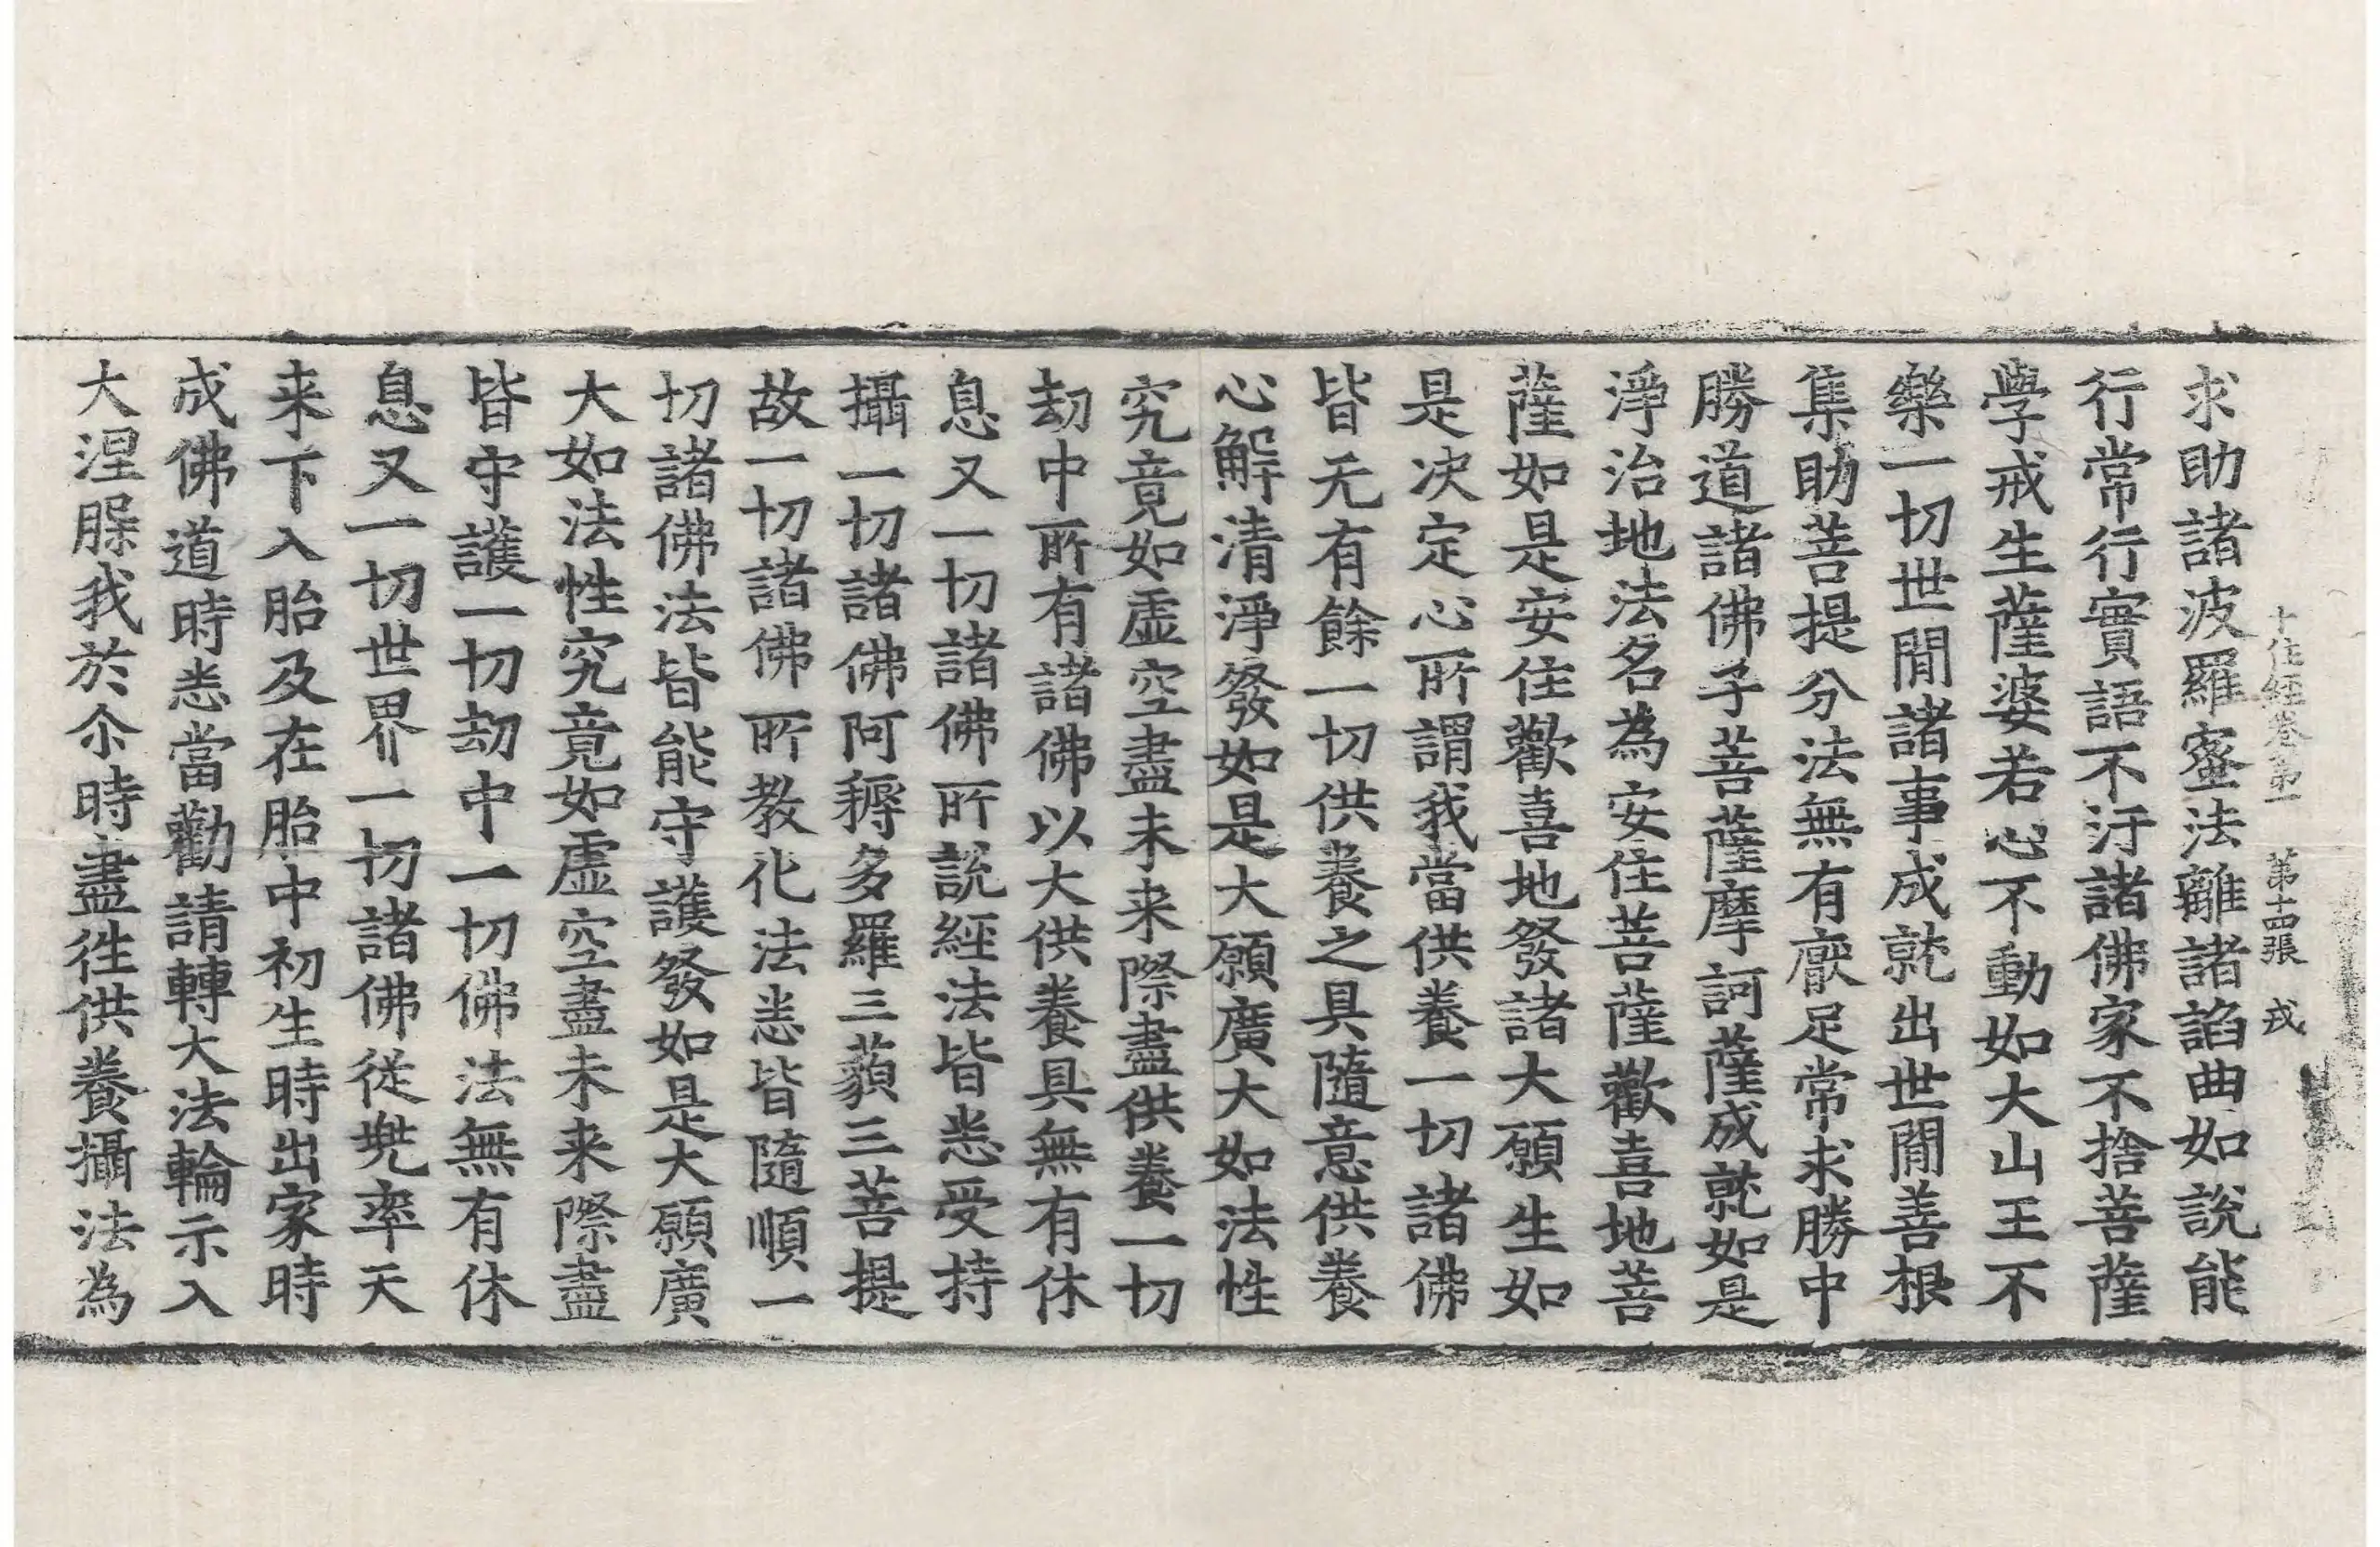 十住經卷第一 第十四張 戎
求助諸波羅蜜法離諸諂曲如說能
行常行實語不汙諸佛家不捨菩薩
學戒生薩婆若心不動如大山王不
樂一切世閒諸事成就出世閒善根
集助菩提分法無有厭足常求勝中
勝道諸佛子菩薩摩訶薩成就如是
淨治地法名為安住菩薩歡喜地菩
薩如是安住歡喜地發諸大願生如
是决定心所謂我當供養一切諸佛
皆无有餘一切供養之具隨意供養
心解清淨發如是大願廣大如法性
究竟如虛空盡未来際盡供養一切
劫中所有諸佛以大供養具無有休
息又一切諸佛所說經法皆悉受持
攝一切諸佛阿耨多羅三藐三菩提
故一切諸佛所教化法悉皆隨順一
切諸佛法皆能守護發如是大願廣
大如法性究竟如虛空盡未来際盡
皆守護一切劫中一切佛法無有休
息又一切世界一切諸佛從兜率天
来下入胎及在胎中初生時出家時
成佛道時悉當勸請轉大法輪示入
大涅槃我於尒時盡往供養攝法為